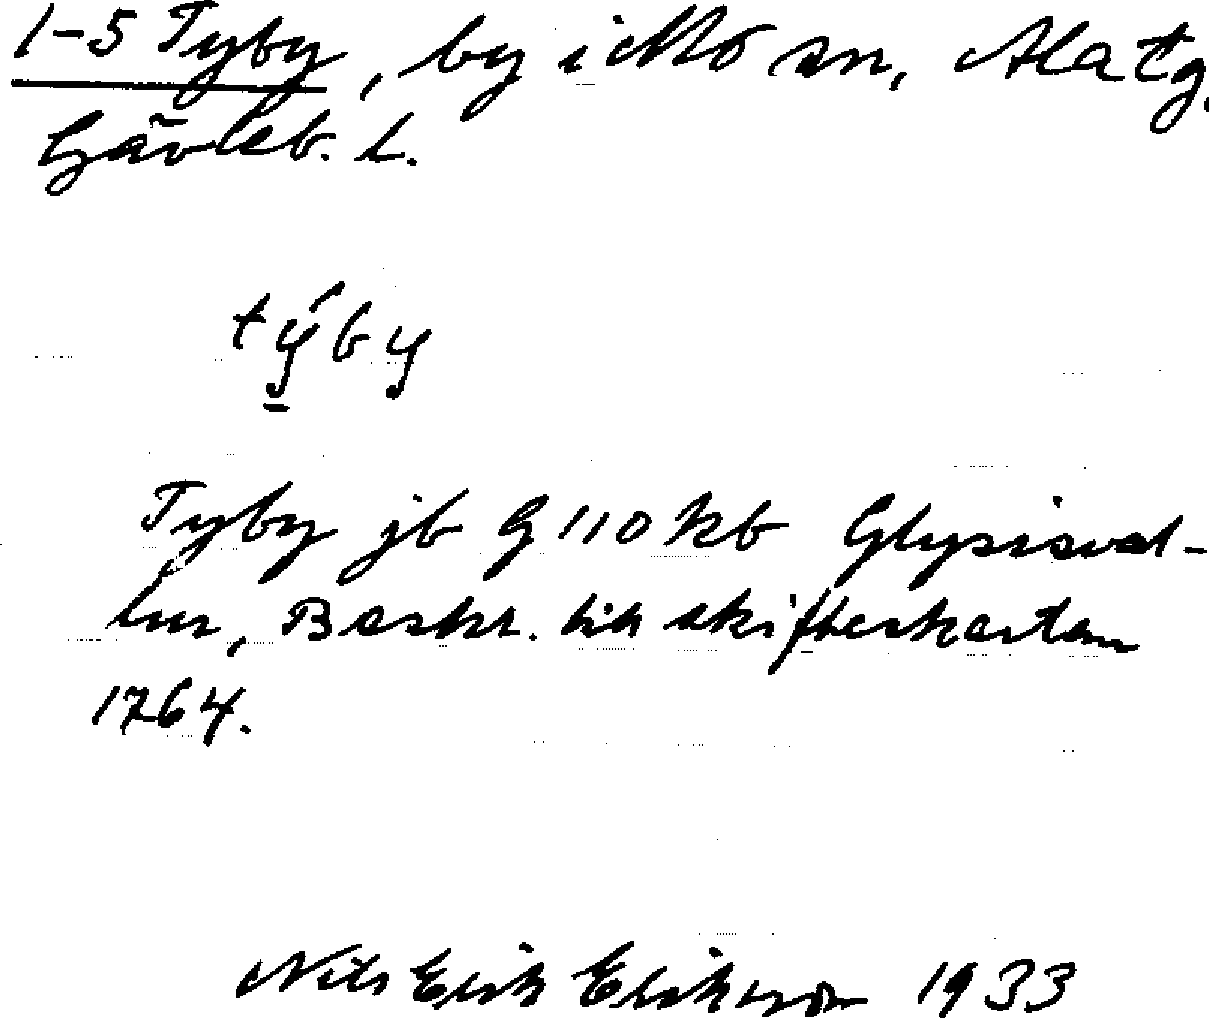 1-5 Tyby, by i Mo sn, Ala tg.
Gävleb. L.
týby
Tyby jb G 110 kb Glysisval-
lur, Beskr. till skifteskartan
1764.
Nils Erik Eriksson 1933